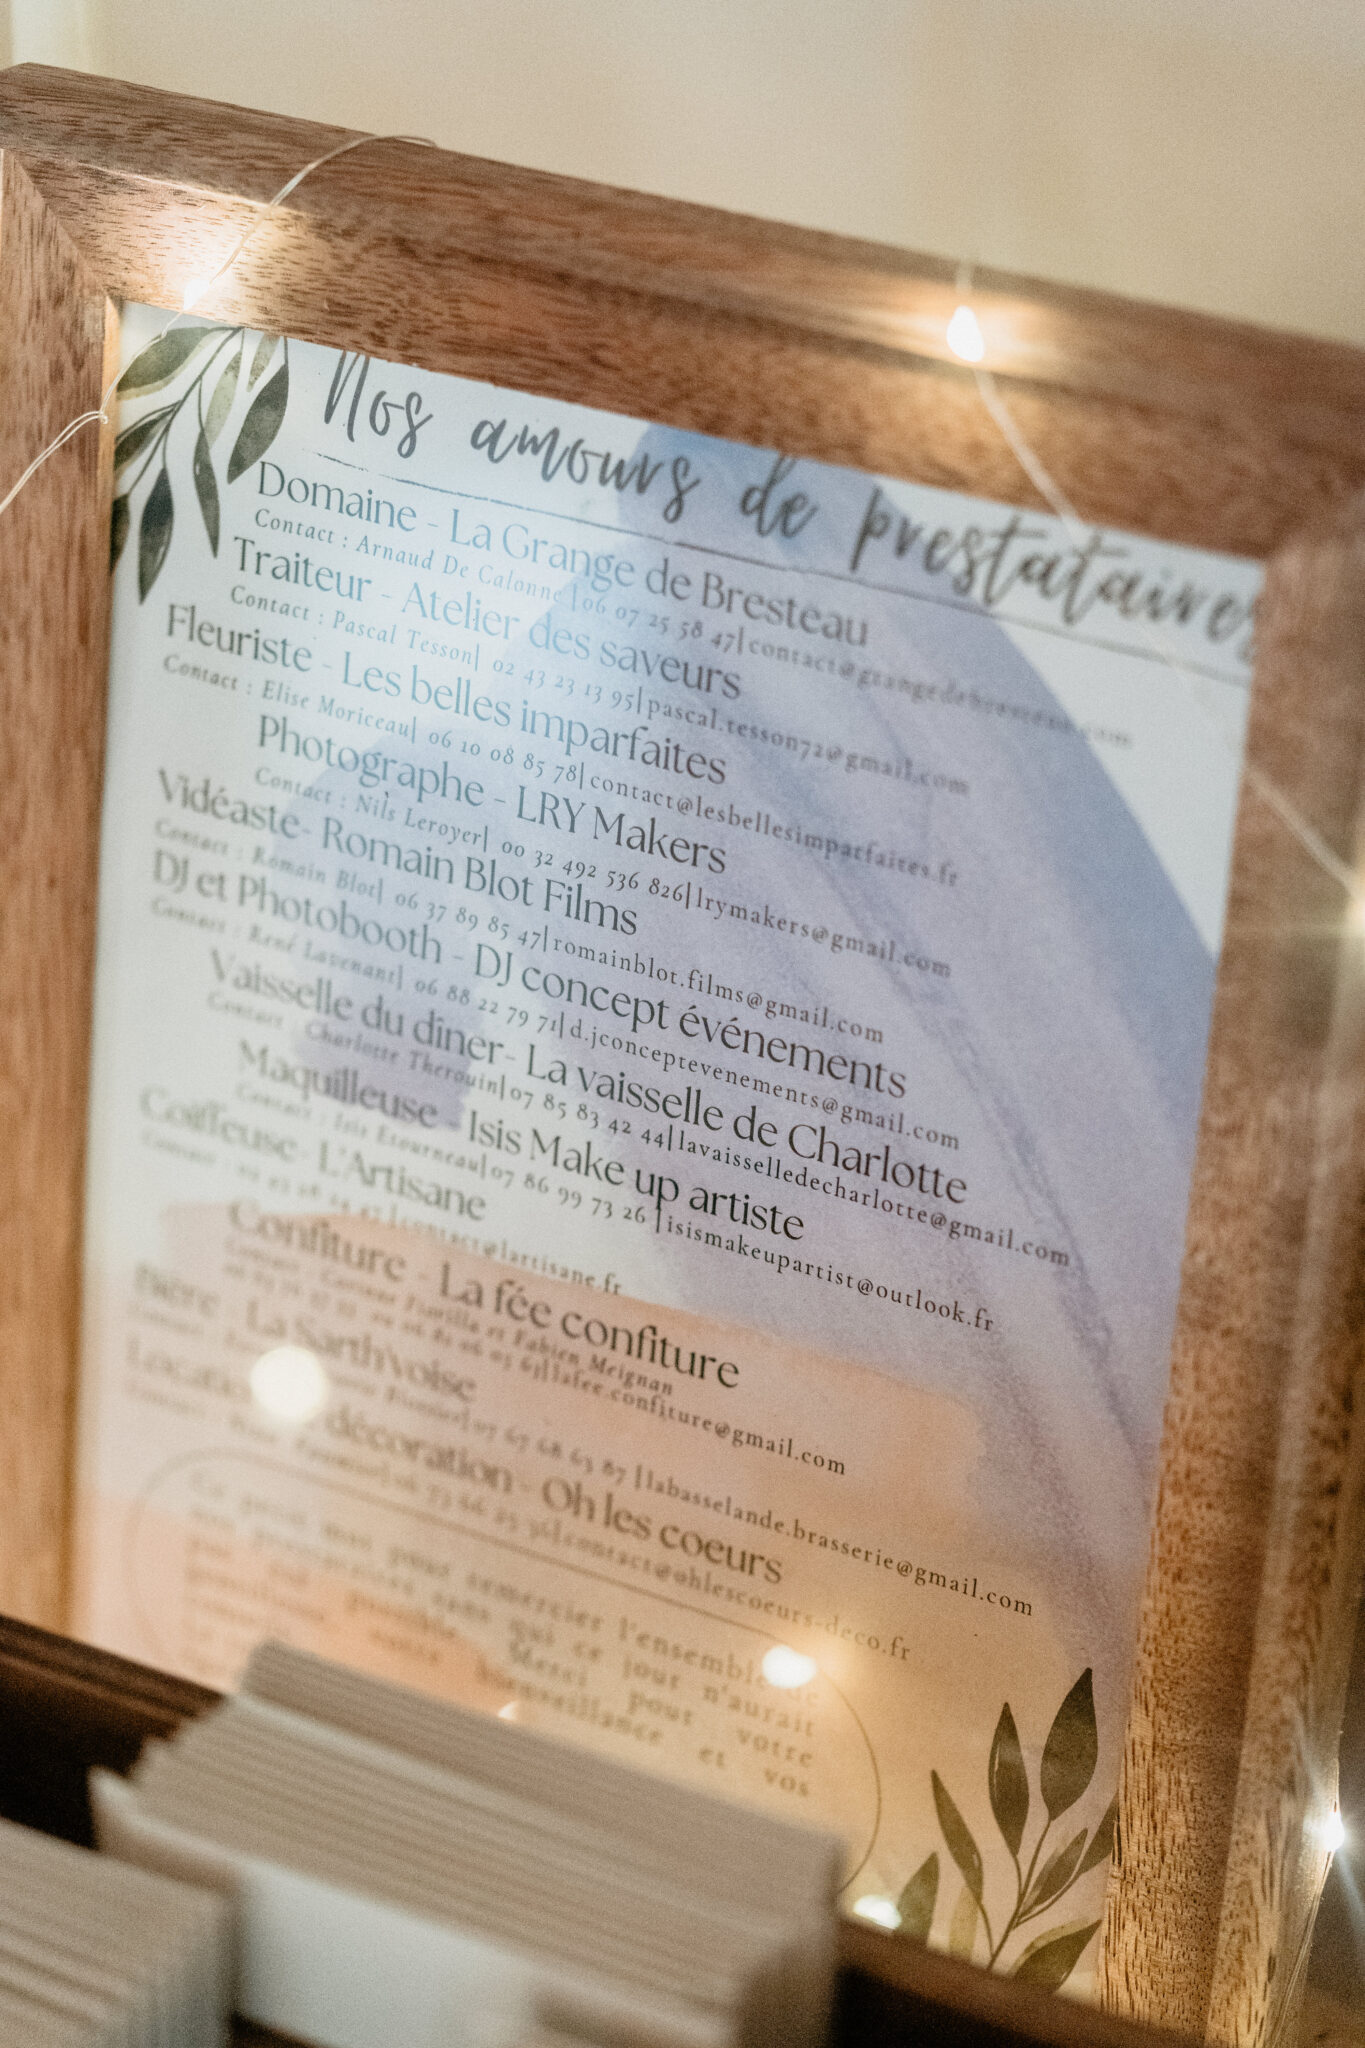 Nos amours de prestataires
Domaine - La Grange de Bresteau
Contact : Arnaud De Calonne|06 07 25 58 47|contact@grangedebresteau.com
Traiteur - Atelier des saveurs
Contact : Pascal Tesson| 02 43 23 13 95|pascal.tesson72@gmail.com
Fleuriste - Les belles imparfaites
Contact : Elise Moriceau| 06 10 08 85 78|contact@lesbellesimparfaites.fr
Photographe - LRY Makers
Contact : Nils Leroyer| 00 32 492 536 826|lrymakers@gmail.com
Vidéaste- Romain Blot Films
Contact : Romain Blot| 06 37 89 85 47|romainblot.films@gmail.com
DJ et Photobooth - DJ concept événements
Contact : René Lavenant| 06 88 22 79 71|d.jconceptevenements@gmail.com
Vaisselle du dîner- La vaisselle de Charlotte
Contact : Charlotte Therouin|07 85 83 42 44|lavaisselledecharlotte@gmail.com
Maquilleuse - Isis Make up artiste
Contact : Isis Etourneau|07 86 99 73 26 |isismakeupartist@outlook.fr
Coiffeuse- L'Artisane
Contact : |contact@lartisane.fr
Confiture - La fée confiture
Contact : et Fabien Meignan
|lafee.confiture@gmail.com
Bière - La Sarth'Voise
Contact : |07 67 68 63 87 |labasselande.brasserie@gmail.com
Location décoration - Oh les coeurs
Contact : |contact@ohlescoeurs-deco.fr
Ce petit mot pour remercier l'ensemble de
nos prestataires sans qui ce jour n'aurait
pas été possible. Merci pour votre
votre bienveillance et vos